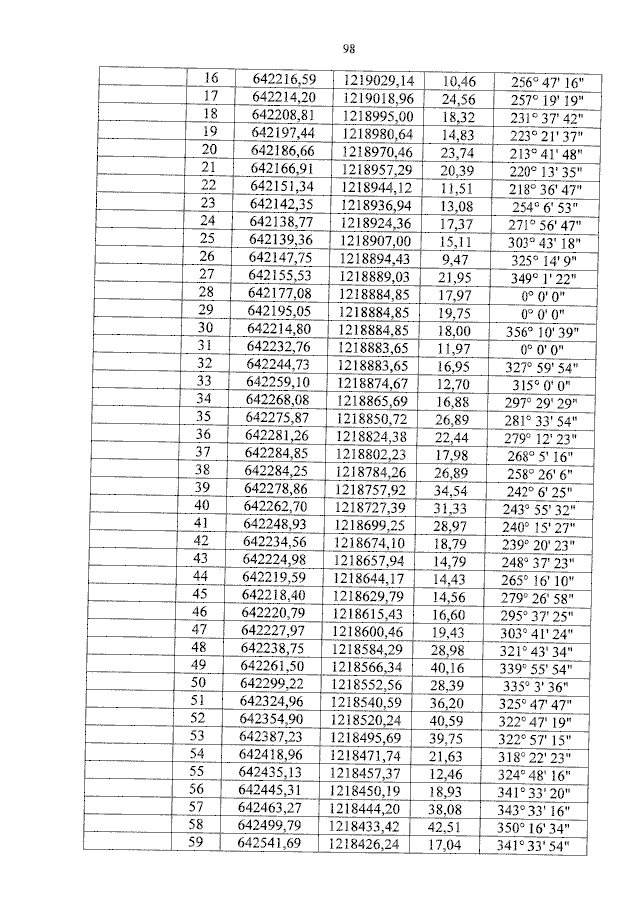 98
16 642216,59 1219029,14 10,46 256° 47' 16"
17 642214,20 1219018,96 24,56 257° 19' 19"
18 642208,81 1218995,00 18,32 231° 37' 42"
19 642197,44 1218980,64 14,83 223° 21' 37"
20 642186,66 1218970,46 23,74 213° 41' 48"
21 642166,91 1218957,29 20,39 220° 13' 35"
22 642151,34 1218944,12 11,51 218° 36' 47"
23 642142,35 1218936,94 13,08 254° 6' 53"
24 642138,77 1218924,36 17,37 271° 56' 47"
25 642139,36 1218907,00 15,11 303° 43' 18"
26 642147,75 1218894,43 9,47 325° 14' 9"
27 642155,53 1218889,03 21,95 349° 1' 22"
28 642177,08 1218884,85 17,97 0° 0' 0"
29 642195,05 1218884,85 19,75 0° 0' 0"
30 642214,80 1218884,85 18,00 356° 10' 39"
31 642232,76 1218883,65 11,97 0° 0' 0"
32 642244,73 1218883,65 16,95 327° 59' 54"
33 642259,10 1218874,67 12,70 315° 0' 0"
34 642268,08 1218865,69 16,88 297° 29' 29"
35 642275,87 1218850,72 26,89 281° 33' 54"
36 642281,26 1218824,38 22,44 279° 12' 23"
37 642284,85 1218802,23 17,98 268° 5' 16"
38 642284,25 1218784,26 26,89 258° 26' 6"
39 642278,86 1218757,92 34,54 242° 6' 25"
40 642262,70 1218727,39 31,33 243° 55' 32"
41 642248,93 1218699,25 28,97 240° 15' 27"
42 642234,56 1218674,10 18,79 239° 20' 23"
43 642224,98 1218657,94 14,79 248° 37' 23"
44 642219,59 1218644,17 14,43 265° 16' 10"
45 642218,40 1218629,79 14,56 279° 26' 58"
46 642220,79 1218615,43 16,60 295° 37' 25"
47 642227,97 1218600,46 19,43 303° 41' 24"
48 642238,75 1218584,29 28,98 321° 43' 34"
49 642261,50 1218566,34 40,16 339° 55' 54"
50 642299,22 1218552,56 28,39 335° 3' 36"
51 642324,96 1218540,59 36,20 325° 47' 47"
52 642354,90 1218520,24 40,59 322° 47' 19"
53 642387,23 1218495,69 39,75 322° 57' 15"
54 642418,96 1218471,74 21,63 318° 22' 23"
55 642435,13 1218457,37 12,46 324° 48' 16"
56 642445,31 1218450,19 18,93 341° 33' 20"
57 642463,27 1218444,20 38,08 343° 33' 16"
58 642499,79 1218433,42 42,51 350° 16' 34"
59 642541,69 1218426,24 17,04 341° 33' 54"